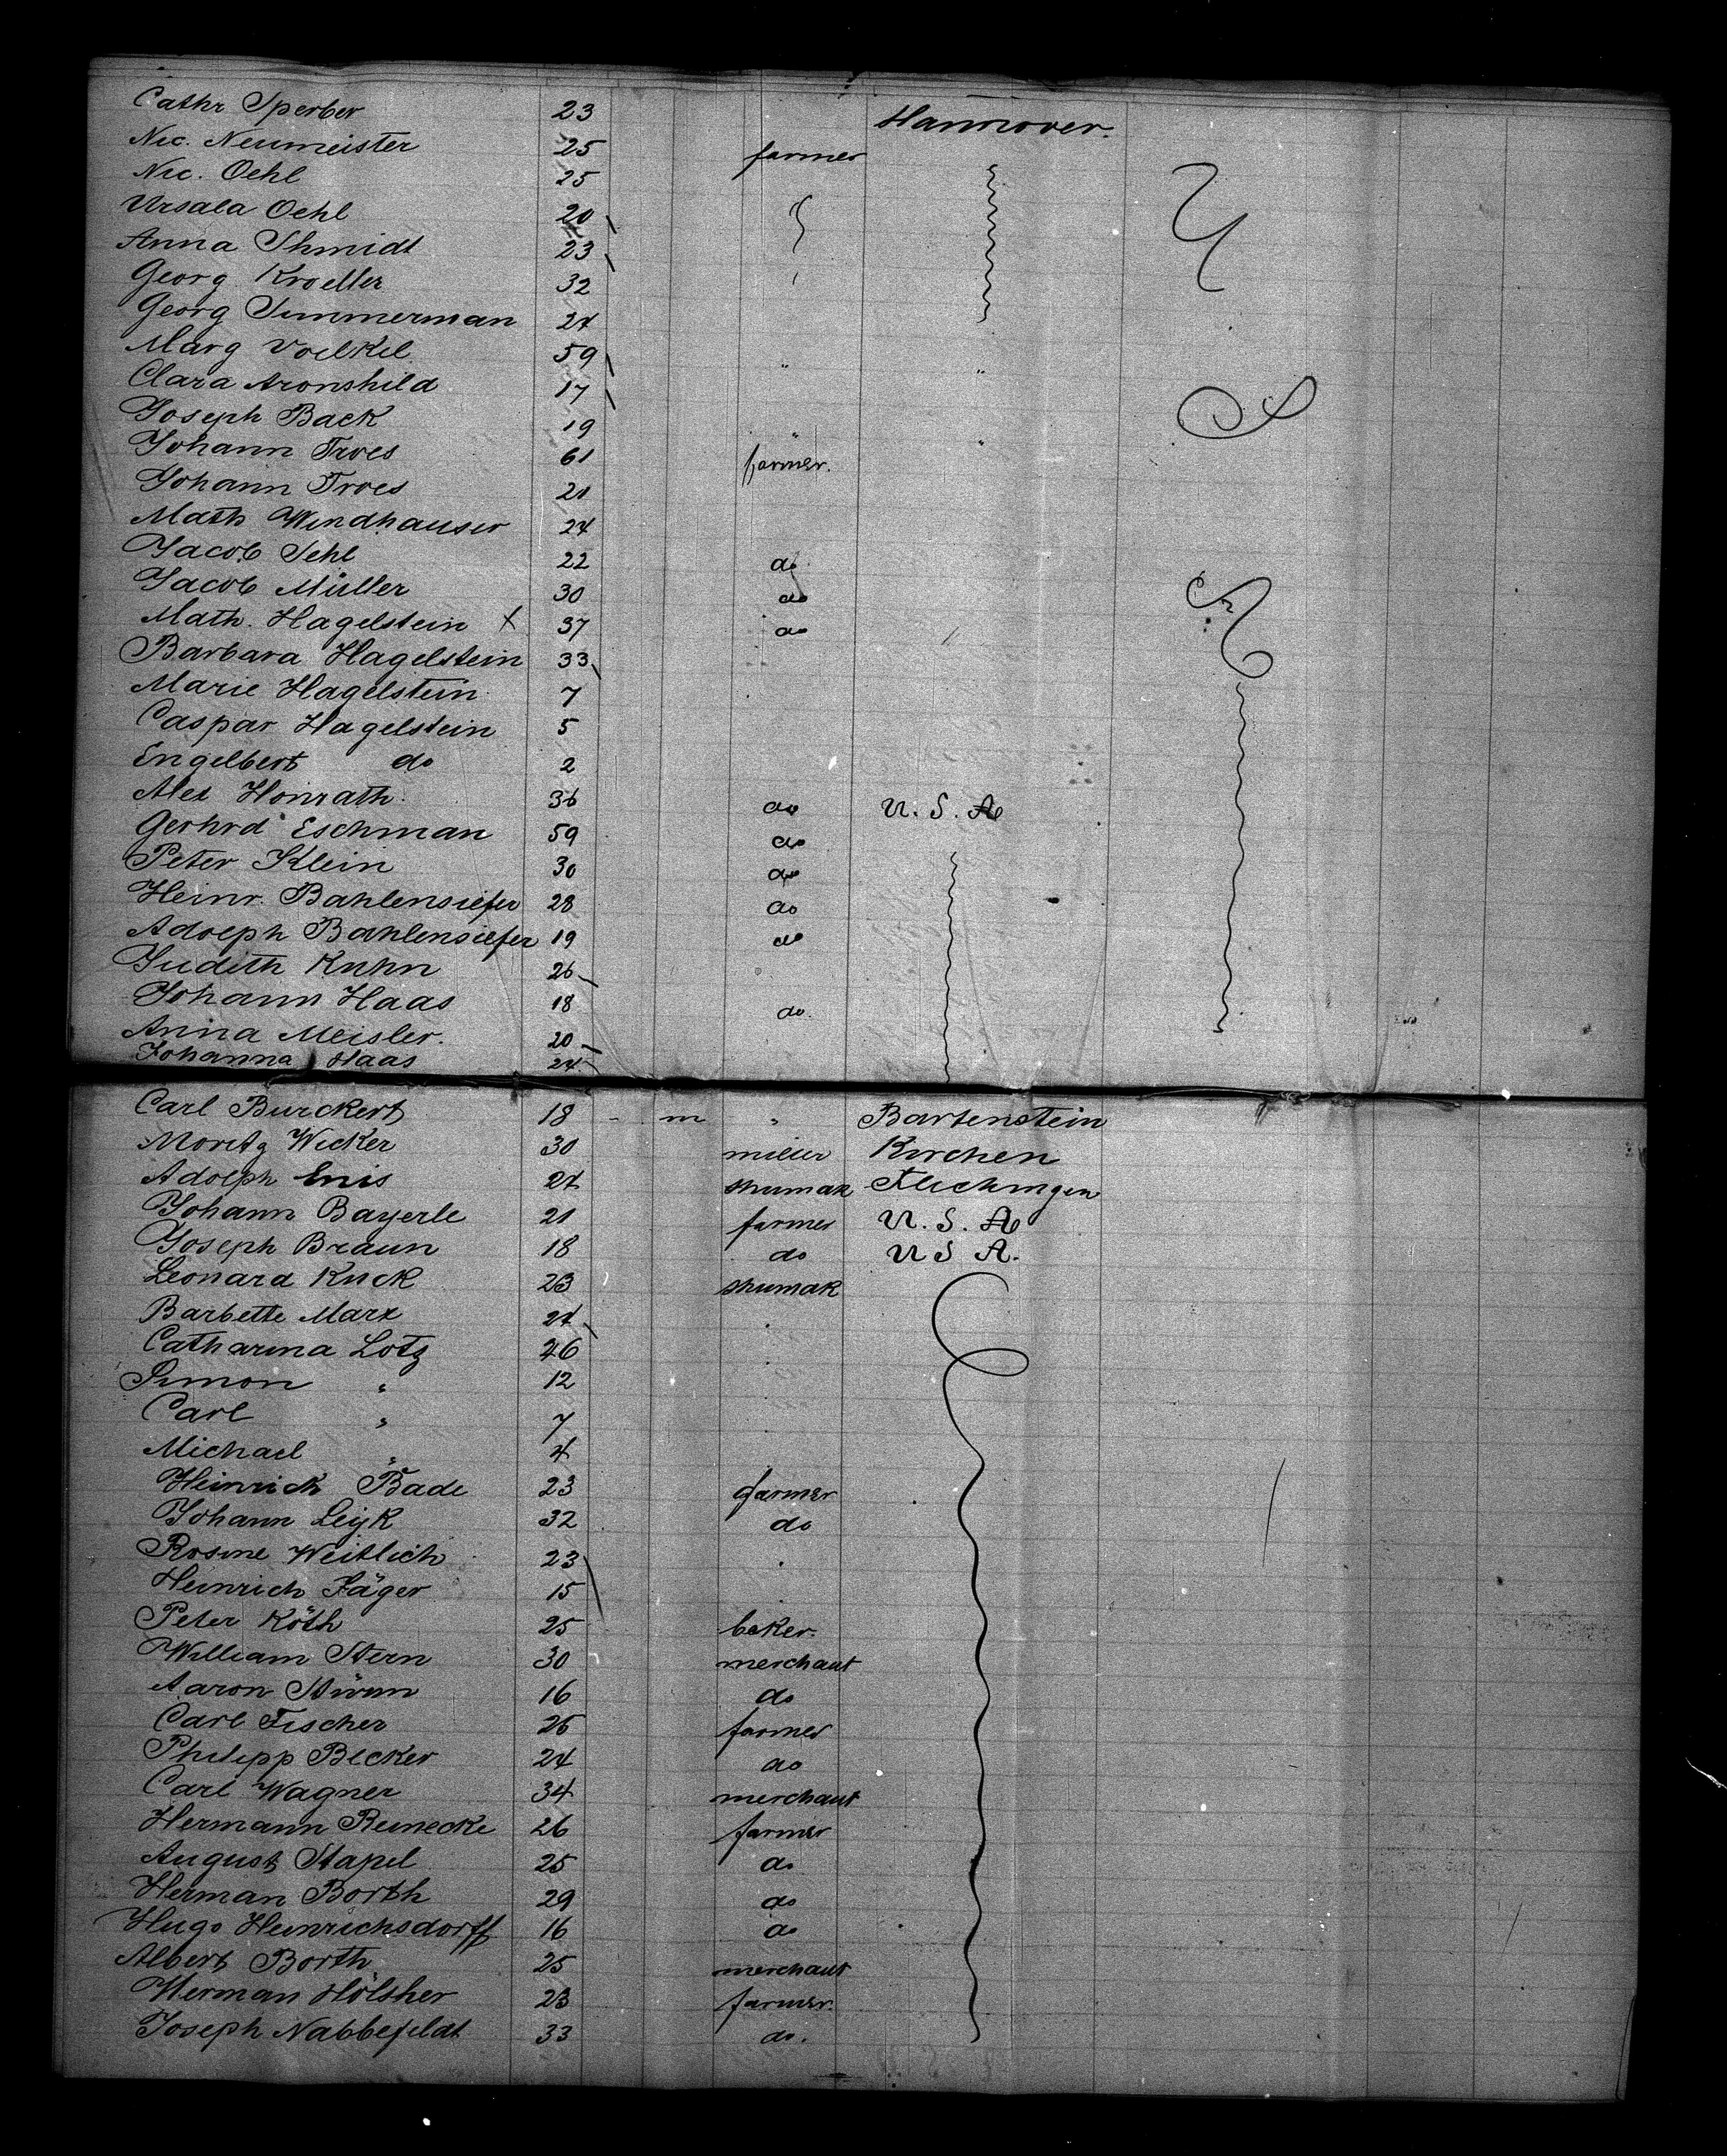 Cathr Sperber 23 Hannover.
Nic. Neumeister 25 farmer
Nic. Oehl 25
Ursala Oehl 20
Anna Shmidt 23
Georg Kroeller 32
Georg Summerman 24
Marg Voelkel 59 " "
Clara Aronshild 17
Joseph Back 19 " "
Johann Troes 61 farmer.
Johann Troes 21
Math Windhauser 24
Jacob Sehl 22 do
Jacob Müller 30 do
Math. Hagelstein X 37 do
Barbara Hagelstein 33
Marie Hagelstein 7
Caspar Hagelstein 5
Engelbert do 2
Alex Honrath 36 do U. S. A
Gerhrd Eschman 59 do
Peter Klein 30 do
Heinr. Bahlensiefer 28 do
Adolph Bahlensiefer 19 do
Judith Kuhn 26
Johann Haas 18 do.
Anna Meisler. 20
Johanna Haas 24
Carl Burckert 18 m " Bartenstein
Moritz Wicker 30 miller Kirchen
Adolph Enis 24 shumak Flechingen
Johann Bayerle 21 farmer U. S. A
Joseph Braun 18 do U S A.
Leonard Kuck 23 shumak
Barbette Marx 24
Catharina Lotz 46
Simon " 12
Carl " 7
Michael " 4
Heinrich Bade 23 farmer
Johann Leyk 32 do
Rosine Weitlich 23
Heinrich Jäger 15
Peter Köth 25 beker.
William Stern 30 merchaut
Aaron 16 do
Carl Fischer 25 farmer
Philipp Becker 24 do
Carl Wagner 34 merchaut
Hermann Reinecke 26 farmer
August Stapel 25 do
Herman Borth 29 do
Hugo Heinrichsdorff 16 do
Albert Borth 25 merchaut
Herman Hölsher 23 farmer.
Joseph Nabbefeldt 33 do.